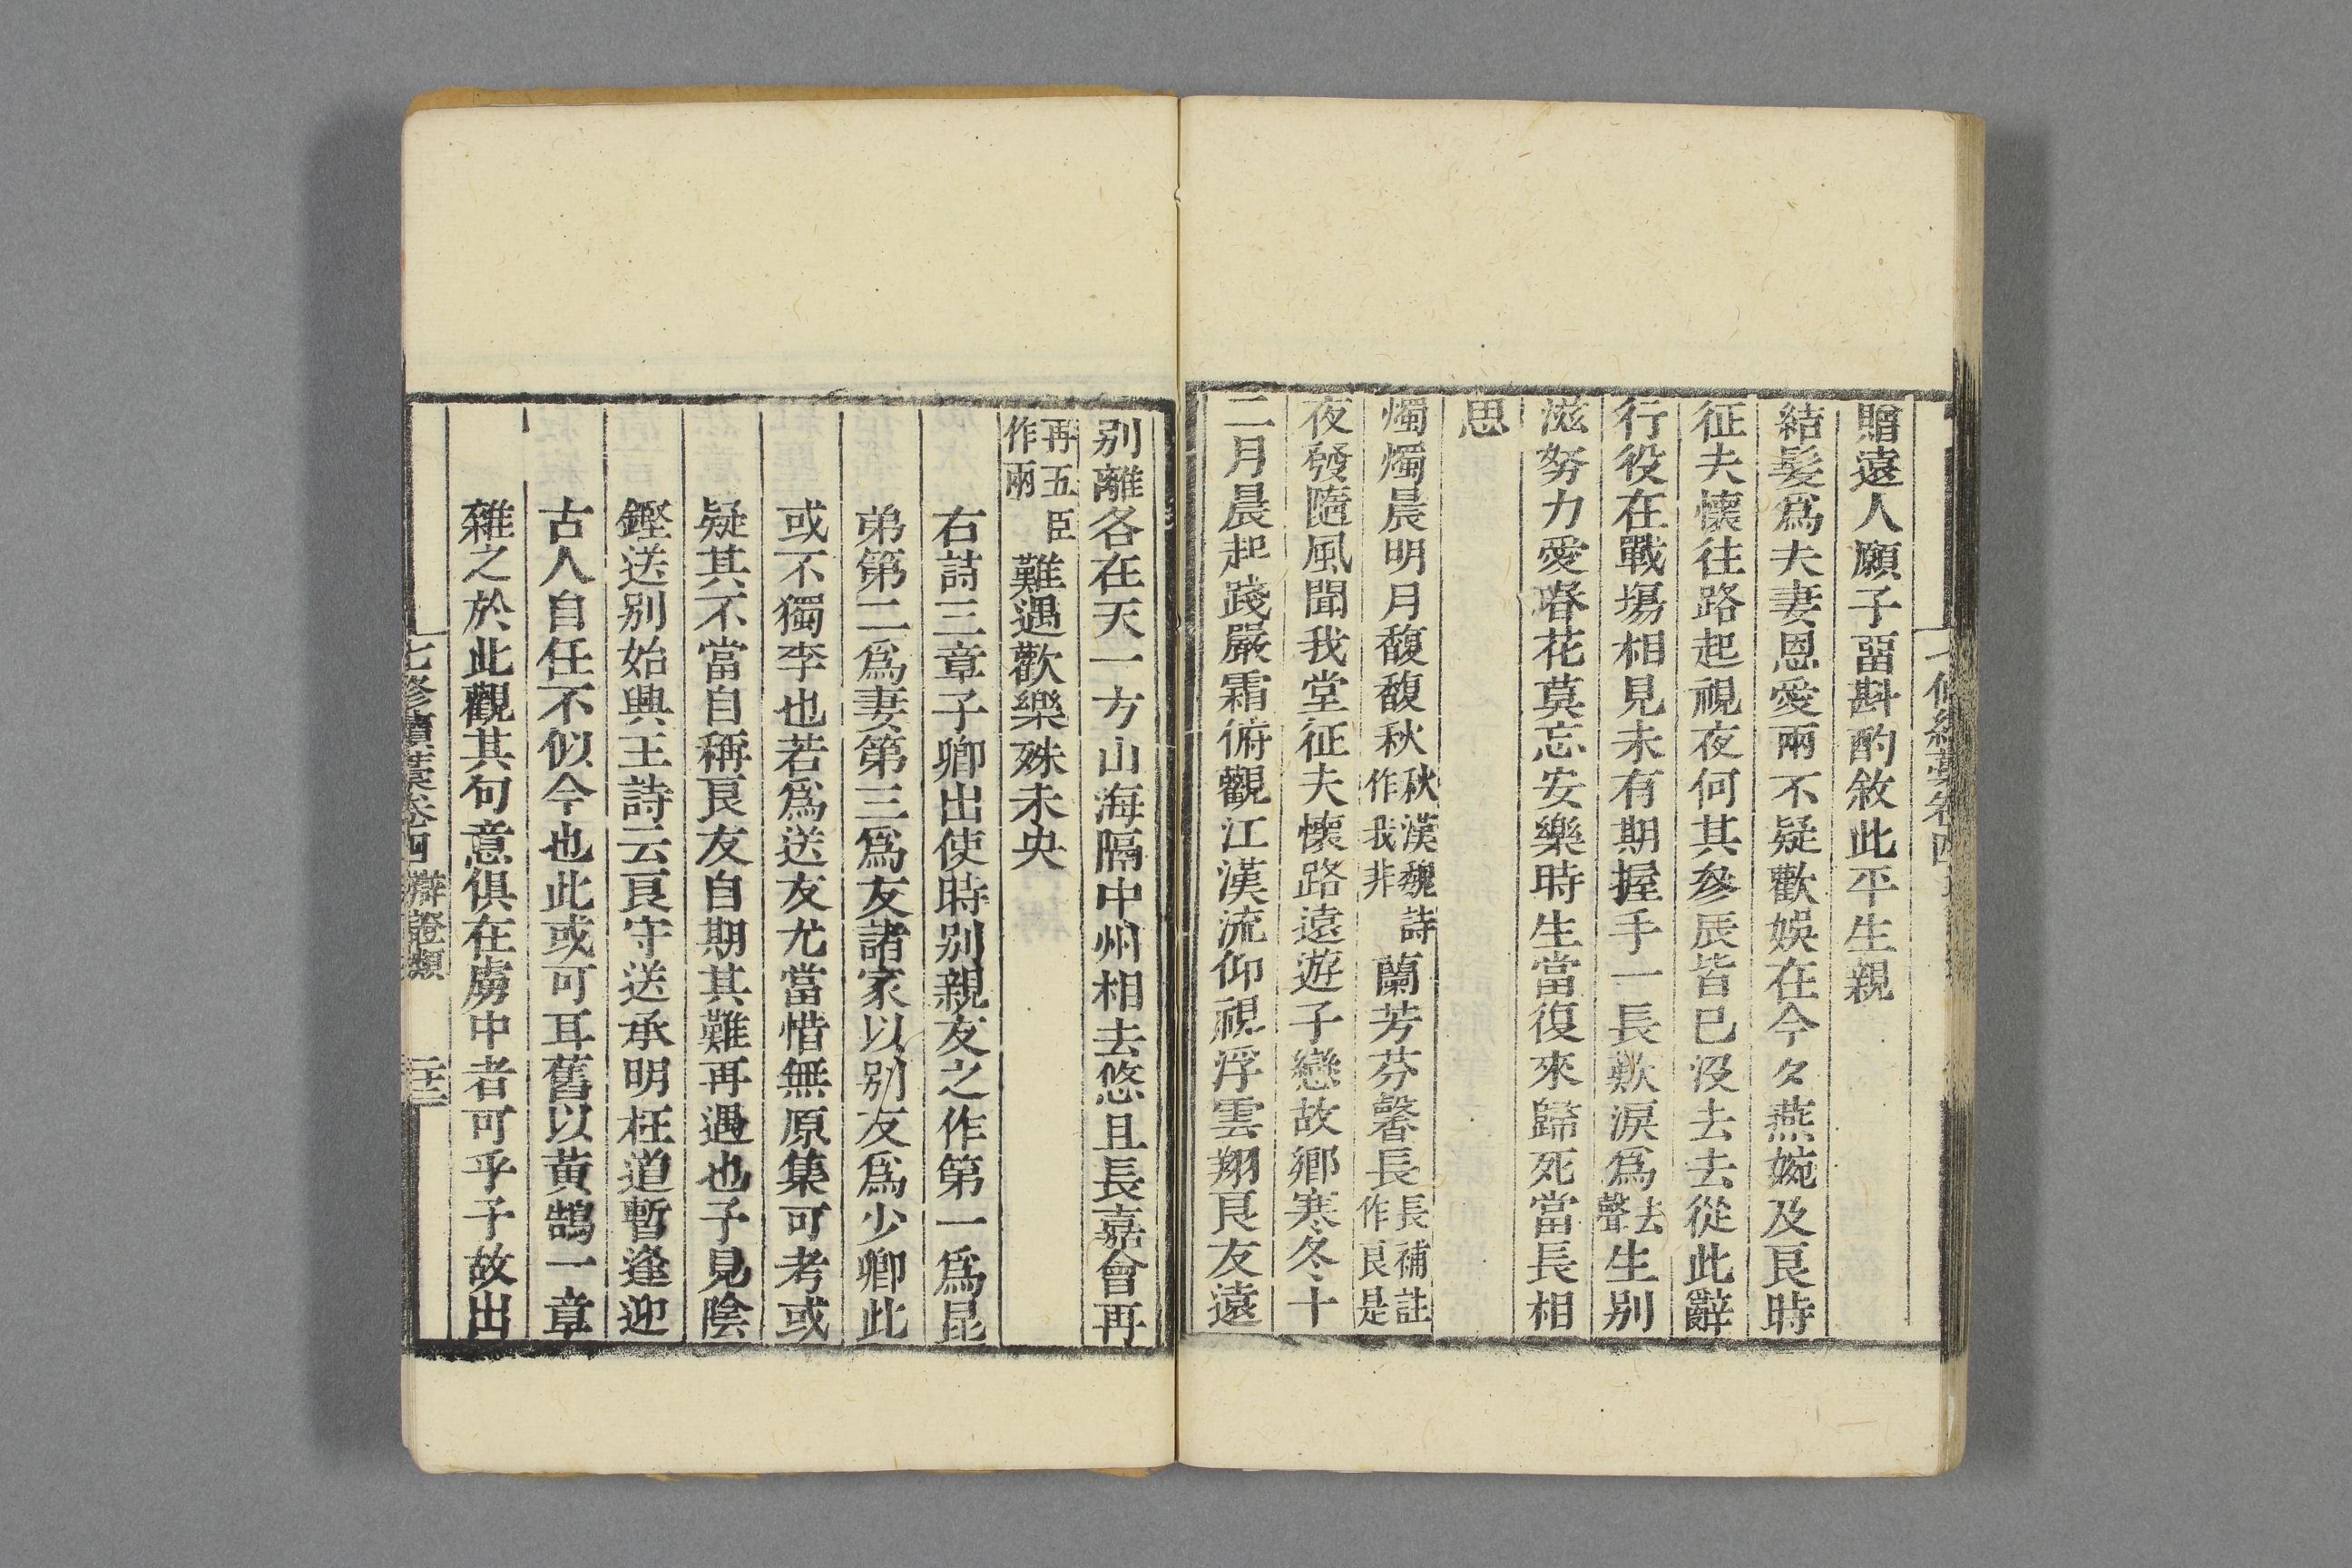 贈遠人願子畱斟酌敘此平生親
結髮爲夫妻恩愛兩不疑歡娛在今夕燕婉及良時
征夫懷往路起視夜何其參辰皆已沒去去從此辭
行役在戰場相見未有期握手一長歎淚爲去聲生别
滋努力愛春花莫忘安樂時生當復來歸死當長相
思
燭燭晨明月馥馥秋秋漢魏詩作我非蘭芳芬馨長長補註作良是
夜發隨風聞我堂征夫懷路遠遊子戀故鄉寒冬十
二月晨起踐嚴霜俯觀江漢流仰視浮雲翔良友遠
别離各在天一方山海隔中州相去悠且長嘉會再
再五臣作兩難遇歡樂殊未央
右詩三章子卿出使時别親友之作第一爲昆
弟第二爲妻第三爲友諸家以别友爲少卿此
或不獨李也若爲送友尤當惜無原集可考或
疑其不當自稱良友自期其難再遇也子見陰
鏗送别始興王詩云良守送承明枉道暫逢迎
古人自任不似今也此或可耳舊以黃鵠一章
雜之於此觀其句意俱在虜中者可乎子故出
七修續藁卷四 辯證類